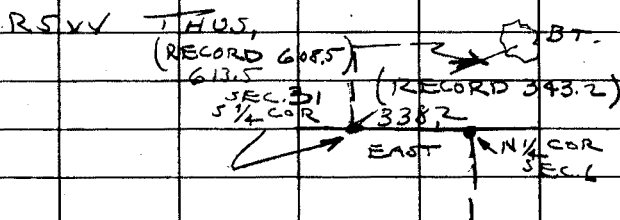 R5W THUS,
(RECORD 608.5)
613.5
B.T.
(RECORD 343.2)
338.2
SEC. 31
S 1/4 COR
EAST
N 1/4 COR
SEC. 6